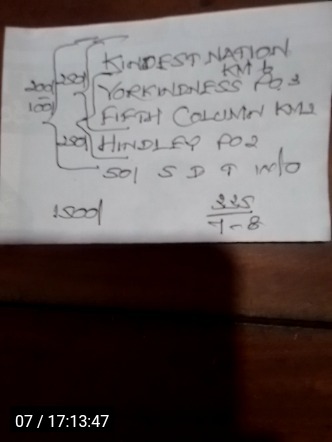 KINDEST NATION
KM 6
200/ 250/ YORKINDNESS PO 3
100/
FIFTH COLUMN KM2
250/ HINDLEY PO 2
50/ S D T W/O
1500/
225
7-8
07 / 17:13:47